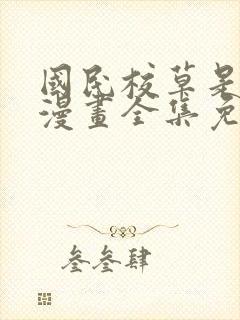 國民校草是
漫畫全集免
叁叁肆